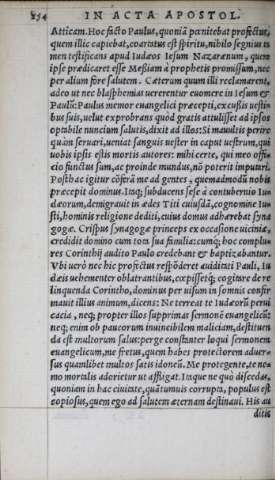 254 IN ACTA APOSTOL.
Atticam. Hoc facto Paulus, quoniã pœnitebat profectus,
quem illic capiebat, coarctatus est spiritu, nihilo segnius ta
men testificans apud Iudæos Iesum Nazarænum, quem
ipse prædicaret esse Messiam à prophetis promissum, nec
per alium fore salutem. Cæterum quum illi reclamarent,
adeo ut nec blasphemias uererentur euomere in Iesum &
Paulũ: Paulus memor euangelici præcepti, excussis uestiu
bus suis, uelut exprobrans quòd gratis attulisset ad ipsos
optabile nuncium salutis, dixit ad illos: Si mauultis perire
quàm seruari, ueniat sanguis uester in caput uestrum, qui
uobis ipsis estis mortis autores: mihi certe, qui meo offi=
cio functus sum, ac proinde mundus, nõ poterit imputari.
Posthac igitur cõferã me ad gentes, quemadmodũ nobis
præcepit dominus. Itaq; subducens sese à contubernio Iu=
dæorum, demigrauit in ædes Titi cuiusdã, cognomine Iu=
sti, hominis religione dediti, cuius domus adhærebat syna
gogæ. Crispus synagogæ princeps ex occasione uiciniæ,
credidit domino cum tota sua familia: cumq; hoc complu=
res Corinthij audito Paulo credebant & baptizabantur.
Vbi uerò nec hic profectus respõderet auiditati Pauli, Iu
dæis uehementer oblatrantibus, cœpissetq; cogitare de re
linquenda Corintho, dominus per uisum in somnis confir
mauit illius animum, dicens: Ne terreat te Iudæorũ perui
cacia, neq; propter illos supprimas sermonẽ euangelicũ:
neq; enim ob paucorum inuincibilem maliciam, destituen
da est multorum salus: perge constanter loqui sermonem
euangelicum, me fretus, quem habes protectorem aduer=
sus quamlibet multos satis idoneũ. Me protegente, te ne=
mo mortalis adorietur ut affligat. Itaque ne quò discedas,
quoniam in hac ciuitate, quãtumuis corrupta, populus est
copiosus, quem ego ad salutem æternam destinaui. His au
ditis